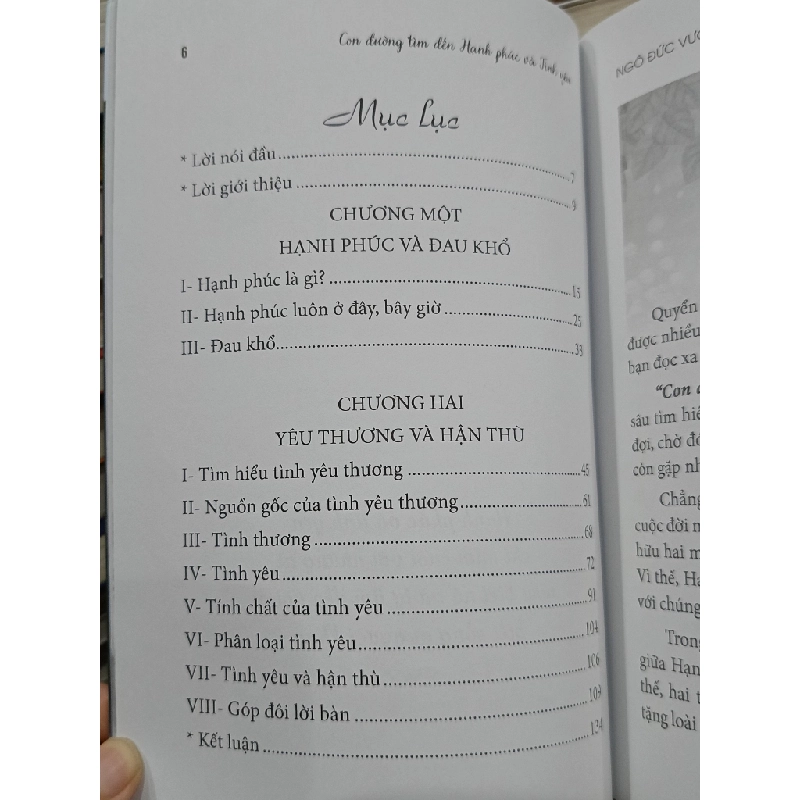 6
Con đường tìm đến Hạnh phúc và Tình yêu
Mục Lục
* Lời nói đầu 7
* Lời giới thiệu 9
CHƯƠNG MỘT
HẠNH PHÚC VÀ ĐAU KHỔ
I- Hạnh phúc là gì? 15
II- Hạnh phúc luôn ở đây, bây giờ 25
III- Đau khổ 38
CHƯƠNG HAI
YÊU THƯƠNG VÀ HẬN THÙ
I- Tìm hiểu tình yêu thương 45
II- Nguồn gốc của tình yêu thương 61
III- Tình thương 68
IV- Tình yêu 72
V- Tính chất của tình yêu 91
VI- Phân loại tình yêu 104
VII- Tình yêu và hận thù 106
VIII- Góp đôi lời bàn 109
* Kết luận 134
NGÔ ĐỨC
Quyển
được nhiều
bạn đọc xa
"Con
sâu tìm
đợi, chờ
còn gặp
Chẳng
cuộc đời
hữu hai
Vì thế,
với chúng
Trong
giữa
thể, hai
tặng loài